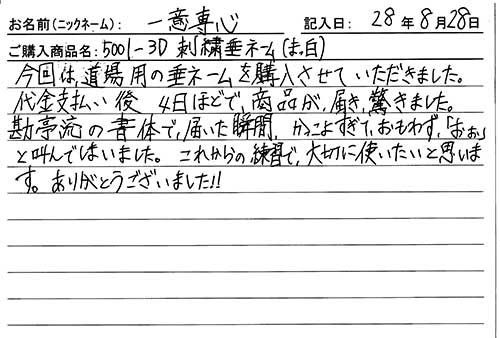 お名前(ニックネーム): 一意専心 記入日: 28年8月28日
ご購入商品名: 5001-3D刺繍垂ネーム(ま。白)
今回は、道場用の垂ネームを購入させていただきました。
代金支払い後 4日ほどで、商品が、届き、驚きました。
勘亭流の書体で、届いた瞬間、かっこよすぎて、おもわず、「おぉぉ」
と叫んでしまいました。これからの練習で、大切に使いたいと思いま
す。ありがとうございました!!